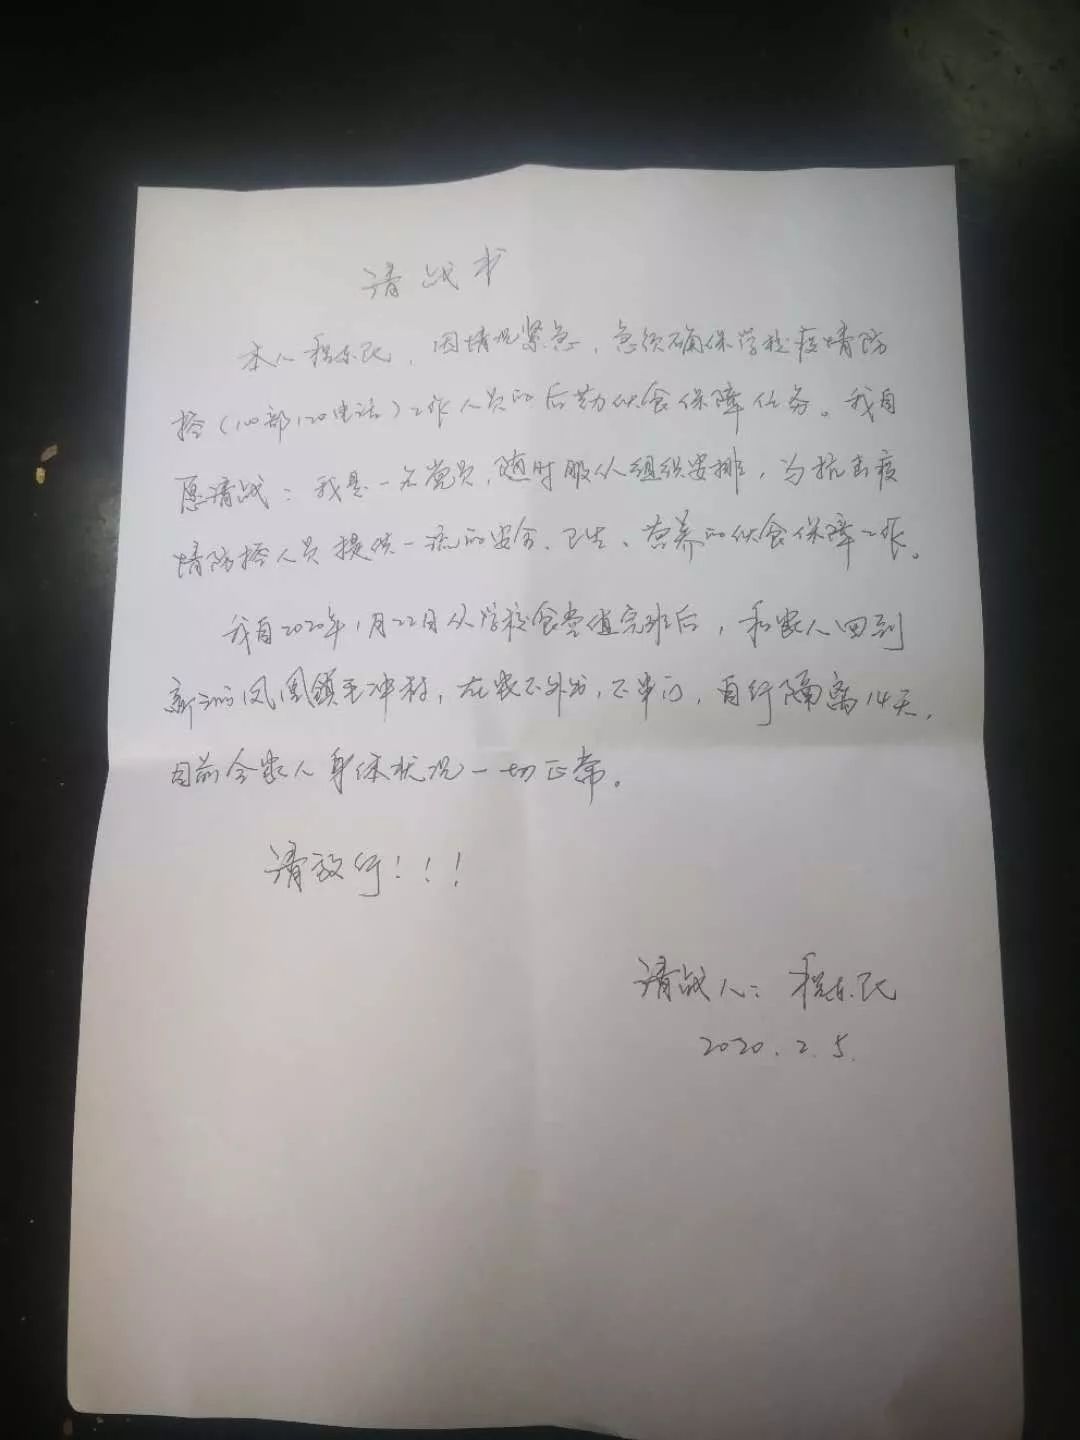 请战书
本人程东民，因情况紧急，急须确保学校疫情防
控（100部120电话）工作人员的后勤伙食保障任务。我自
愿请战：我是一名党员，随时服从组织安排，为抗击疫
情防控人员提供一流的安全、卫生、营养的伙食保障工作。
我自2020年1月22日从学校食堂值完班后，和家人回到
新洲凤凰镇毛冲村，在家不外出，不串门，自行隔离14天，
目前全家人身体状况一切正常。
请放行！！！
请战人：程东民
2020.2.5.